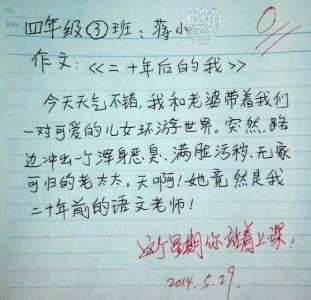 四年级③班：蒋小
0
作文：《二十年后的我》
今天天气不错，我和老婆带着我们
一对可爱的儿女环游世界。突然，路
边冲出一个浑身恶臭、满脸污秽、无家
可归的老太太。天啊！她竟然是我
二十年前的语文老师！
这个星期你站着上课！
2014.5.29.